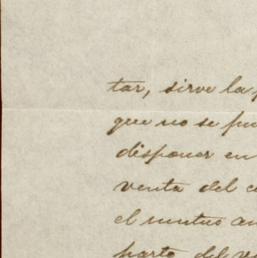 tar, sirve la
que no se pu
disponer en
venta del c
el mutuo an
parte del v